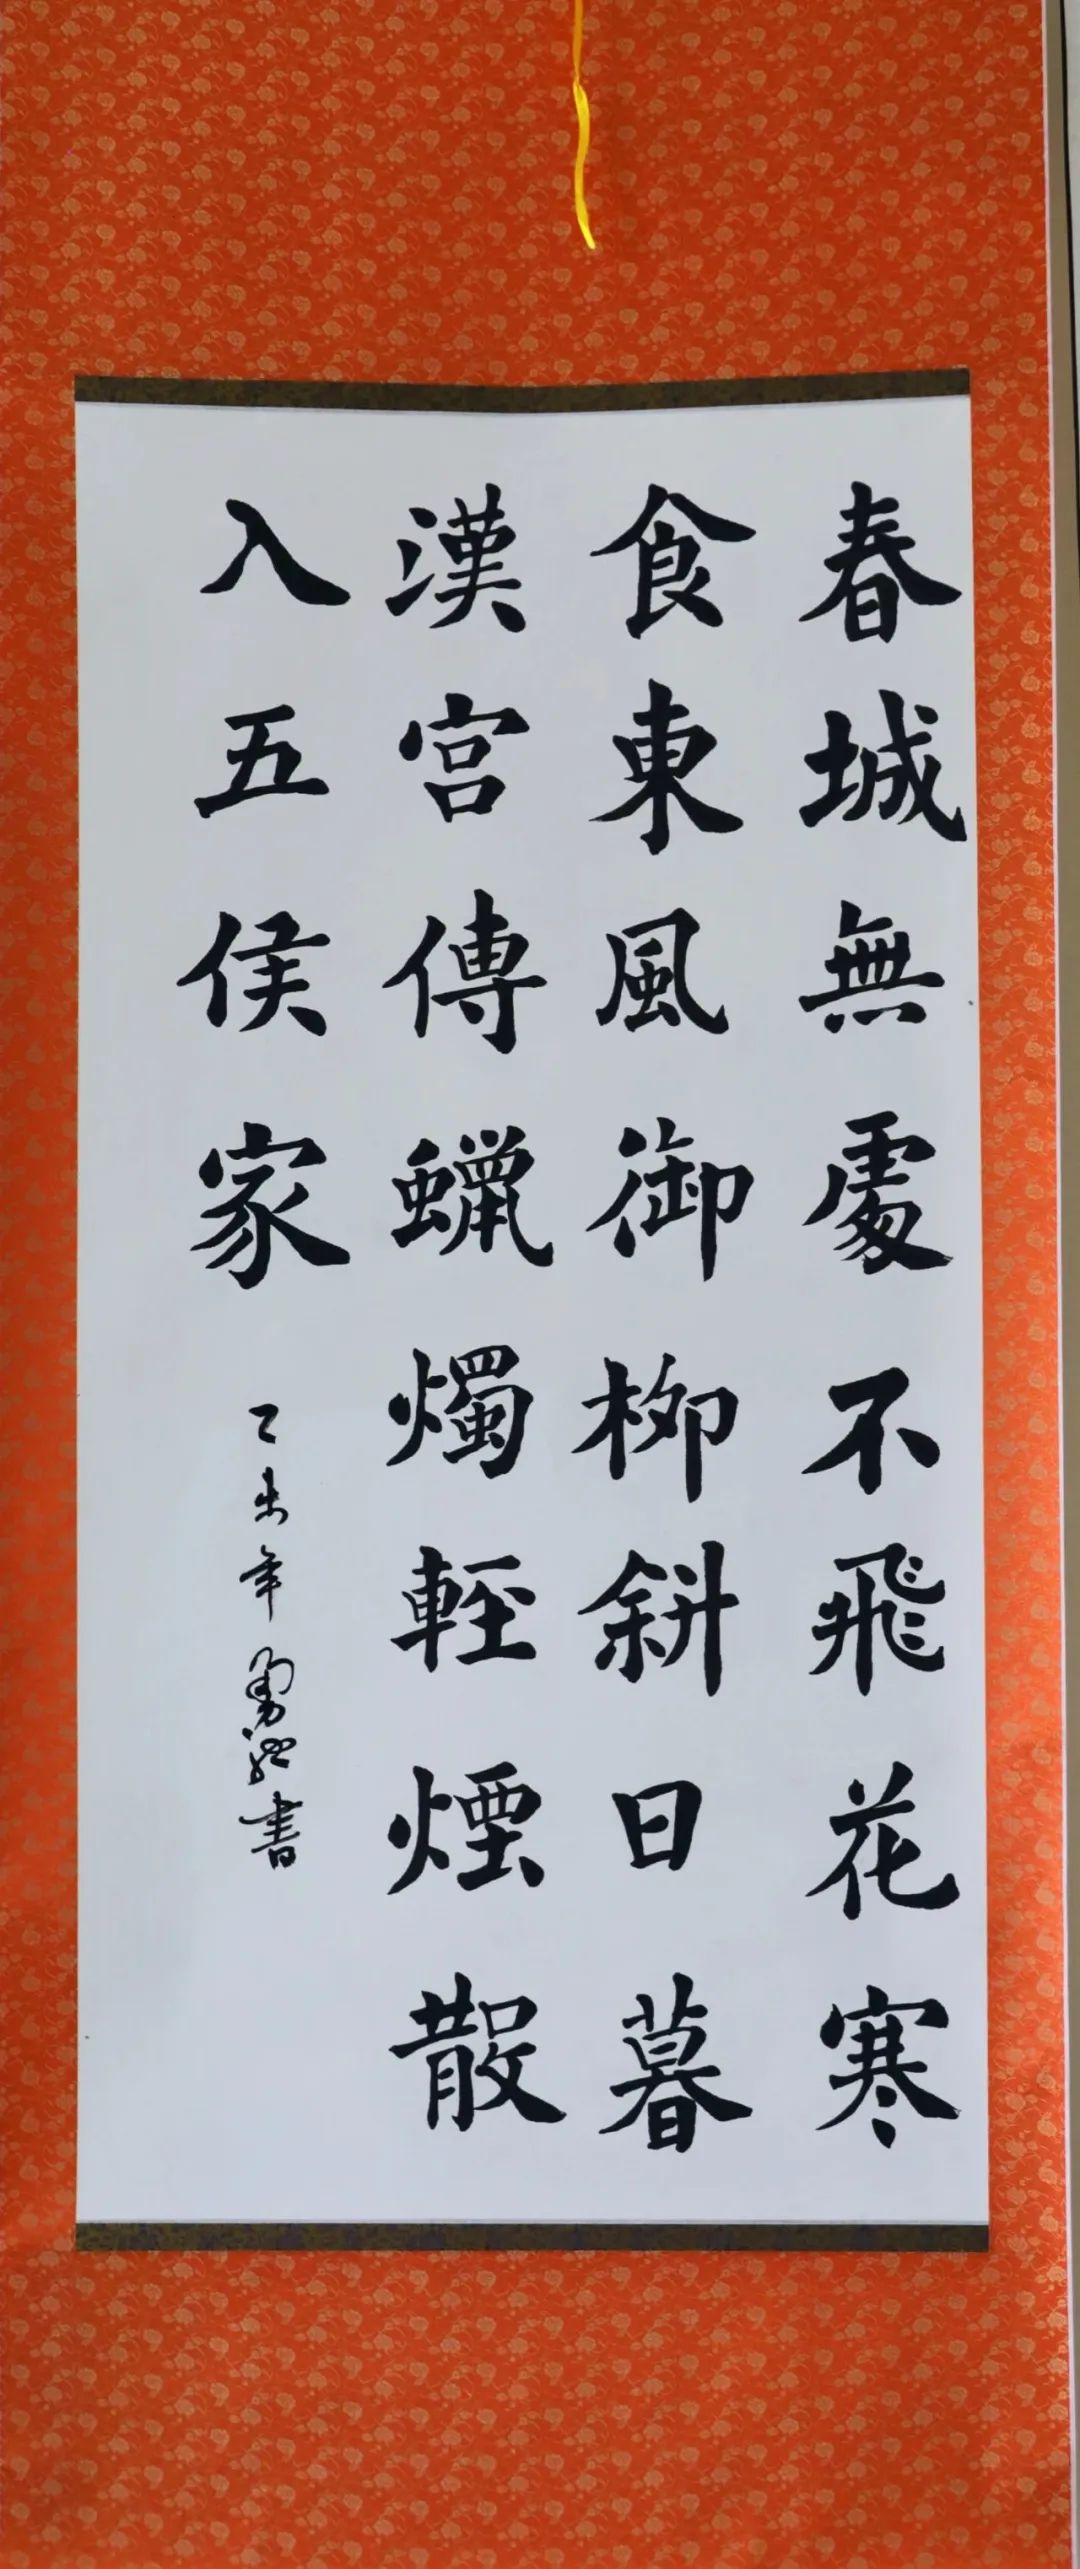 春城無處不飛花寒
食東風御柳斜日暮
漢宮傳蠟燭輕煙散
入五侯家
乙未年勇書